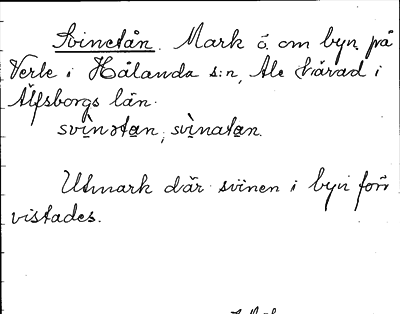 Svinetån. Mark ö. om byn på
Verle i Hålanda s:n, Ale härad i
Älfsborgs län.
svìnətan, svìnatan.
Utmark där svinen i byn förr
vistades.